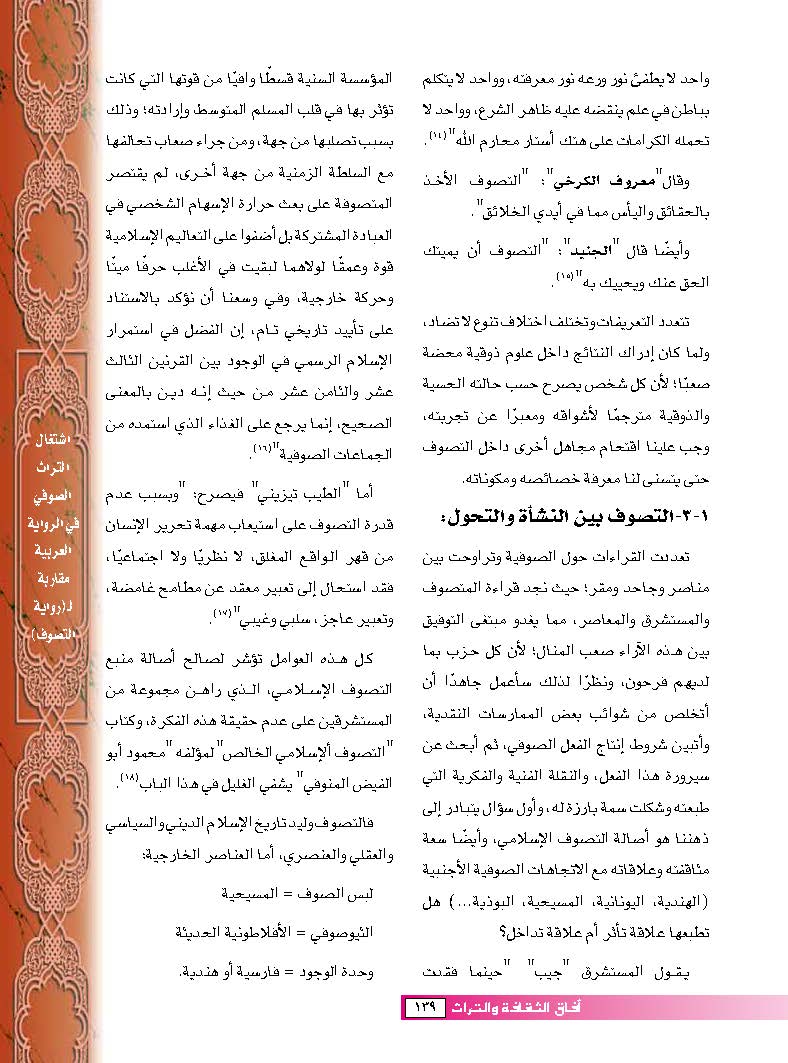 واحد لا يطفئ نور ورعه نور معرفته، وواحد لا يتكلم
بباطن في علم ينقضه عليه ظاهر الشرع، وواحد لا
تحمله الكرامات على هتك أستار محارم الله"(١٤).
وقال"معروف الكرخي": "التصوف الأخذ
بالحقائق واليأس مما في أيدي الخلائق".
وأيضًا قال "الجنيد": "التصوف أن يميتك
الحق عنك ويحييك به"(١٥).
تتعدد التعريفات وتختلف اختلاف تنوع لا تضاد،
ولما كان إدراك النتائج داخل علوم ذوقية محضة
صعبًا؛ لأن كل شخص يصرح حسب حالته الحسية
والذوقية مترجمًا لأشواقه ومعبرًا عن تجربته،
وجب علينا اقتحام مجاهل أخرى داخل التصوف
حتى يتسنى لنا معرفة خصائصه ومكوناته.
١-٣-التصوف بين النشأة والتحول:
تعددت القراءات حول الصوفية وتراوحت بين
مناصر وجاحد ومقر؛ حيث نجد قراءة المتصوف
والمستشرق والمعاصر، مما يغدو مبتغى التوفيق
بين هذه الآراء صعب المنال؛ لأن كل حزب بما
لديهم فرحون، ونظرًا لذلك سأعمل جاهدًا أن
أتخلص من شوائب بعض الممارسات النقدية،
وأتبين شروط إنتاج الفعل الصوفي، ثم أبحث عن
سيرورة هذا الفعل، والنقلة الفنية والفكرية التي
طبعته وشكلت سمة بارزة له، وأول سؤال يتبادر إلى
ذهننا هو أصالة التصوف الإسلامي، وأيضًا سعة
مثاقفته وعلاقاته مع الاتجاهات الصوفية الأجنبية
(الهندية، اليونانية، المسيحية، البوذية...) هل
تطبعها علاقة تأثر أم علاقة تداخل؟
يقول المستشرق "جيب" "حينما فقدت
المؤسسة السنية قسطًا وافيًا من قوتها التي كانت
تؤثر بها في قلب المسلم المتوسط وإرادته؛ وذلك
بسبب تصلبها من جهة، ومن جراء صعاب تحالفها
مع السلطة الزمنية من جهة أخرى، لم يقتصر
المتصوفة على بعث حرارة الإسهام الشخصي في
العبادة المشتركة بل أضفوا على التعاليم الإسلامية
قوة وعمقًا لولاهما لبقيت في الأغلب حرفًا ميتًا
وحركة خارجية، وفي وسعنا أن نؤكد بالاستناد
على تأييد تاريخي تام، إن الفضل في استمرار
الإسلام الرسمي في الوجود بين القرنين الثالث
عشر والثامن عشر من حيث إنه دين بالمعنى
الصحيح، إنما يرجع على الغذاء الذي استمده من
الجماعات الصوفية"(١٦).
أما "الطيب تيزيني" فيصرح: "وبسبب عدم
قدرة التصوف على استيعاب مهمة تحرير الإنسان
من قهر الواقع المغلق، لا نظريًا ولا اجتماعيًا،
فقد استحال إلى تعبير معقد عن مطامح غامضة،
وتعبير عاجز، سلبي وغيبي"(١٧).
كل هذه العوامل تؤشر لصالح أصالة منبع
التصوف الإسلامي، الذي راهن مجموعة من
المستشرقين على عدم حقيقة هذه الفكرة، وكتاب
"التصوف ألإسلامي الخالص"لمؤلفه "محمود أبو
الفيض المنوفي" يشفي الغليل في هذا الباب(١٨).
فالتصوف وليد تاريخ الإسلام الديني والسياسي
والعقلي والعنصري، أما العناصر الخارجية:
لبس الصوف = المسيحية
الثيوصوفي = الأفلاطونية الحديثة
وحدة الوجود = فارسية أو هندية.
اشتغال
التراث
الصوفي
في الرواية
العربية
مقاربة
لـ(رواية
التصوف)
آفاق الثقافة والتراث ١٣٩